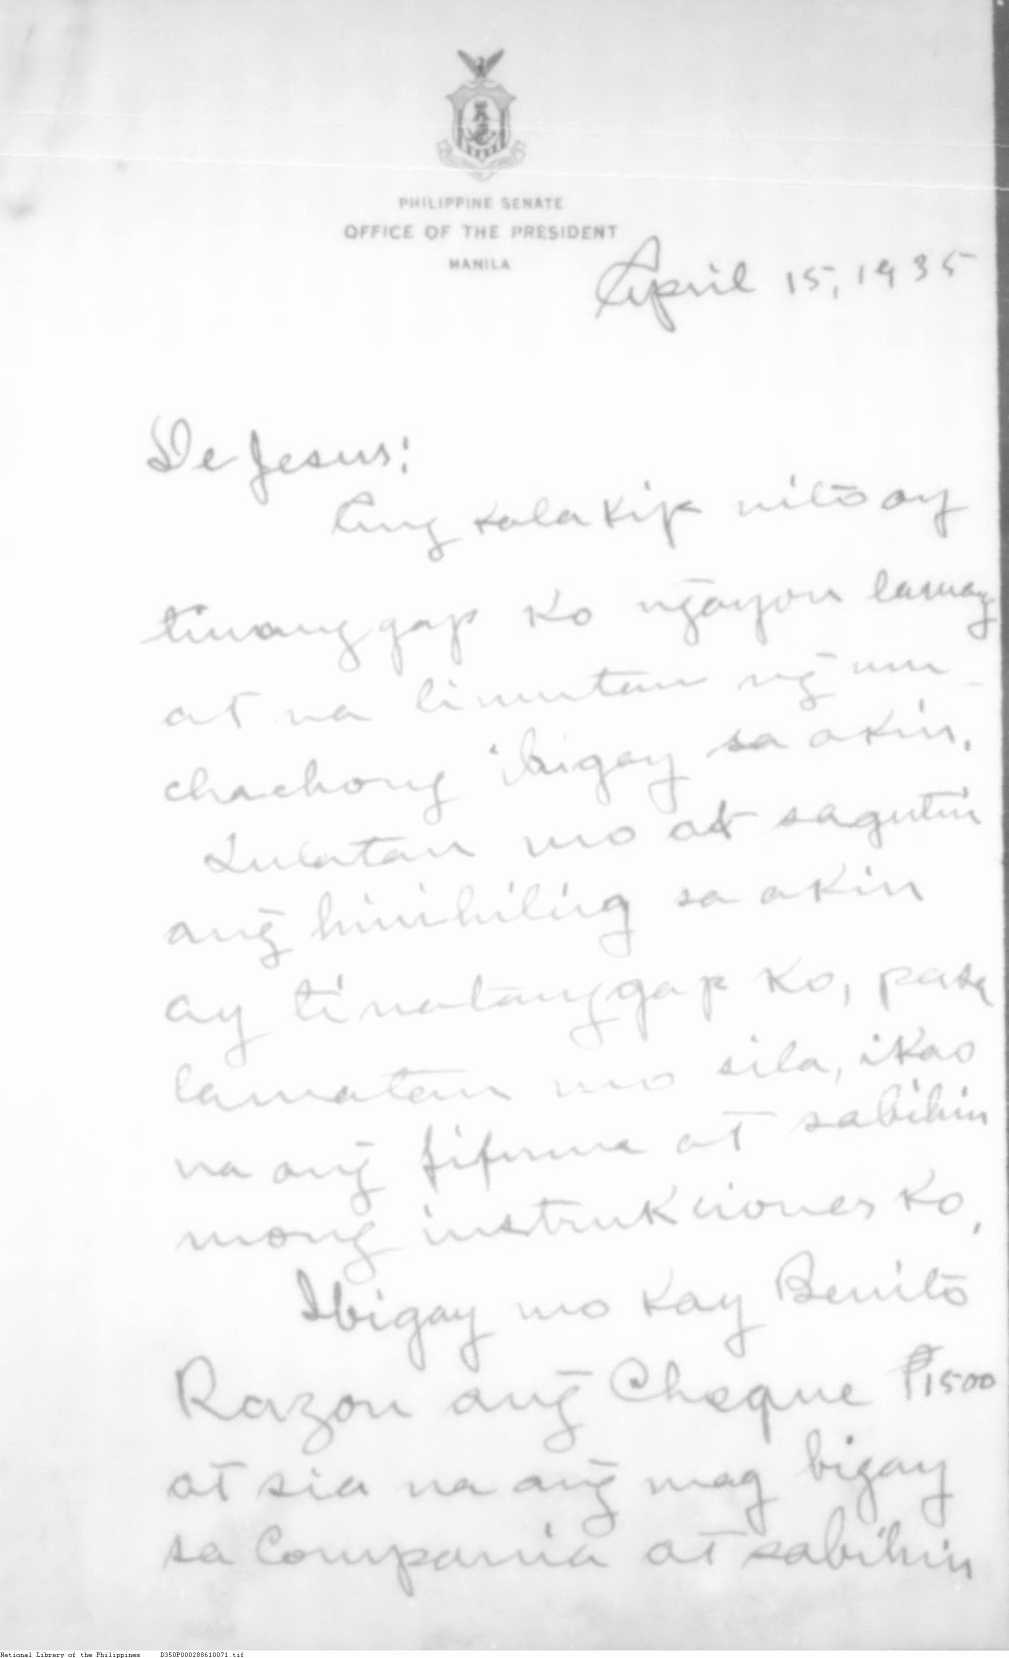 PHILIPPINE SENATE
OFFICE OF THE PRESIDENT
MANILA
April 15, 1935
De Jesus:
Ang kalakip nito ay
tinanggap ko ngayon lamang
at na linutan ng mu
chachong ibigay sa akin.
Sulatan mo at sagutin
ang hinihiling sa akin
ay tinatanggap ko,
lamatan mo sila, ikao
na ang fifirma at sabihin
mong instrukciones ko,
Ibigay mo kay Benito
Razon ang Cheque ₱1500
at sia na ang mag bigay
sa Compania at sabihin
National Library of the Philippines D350P000288610071.tif